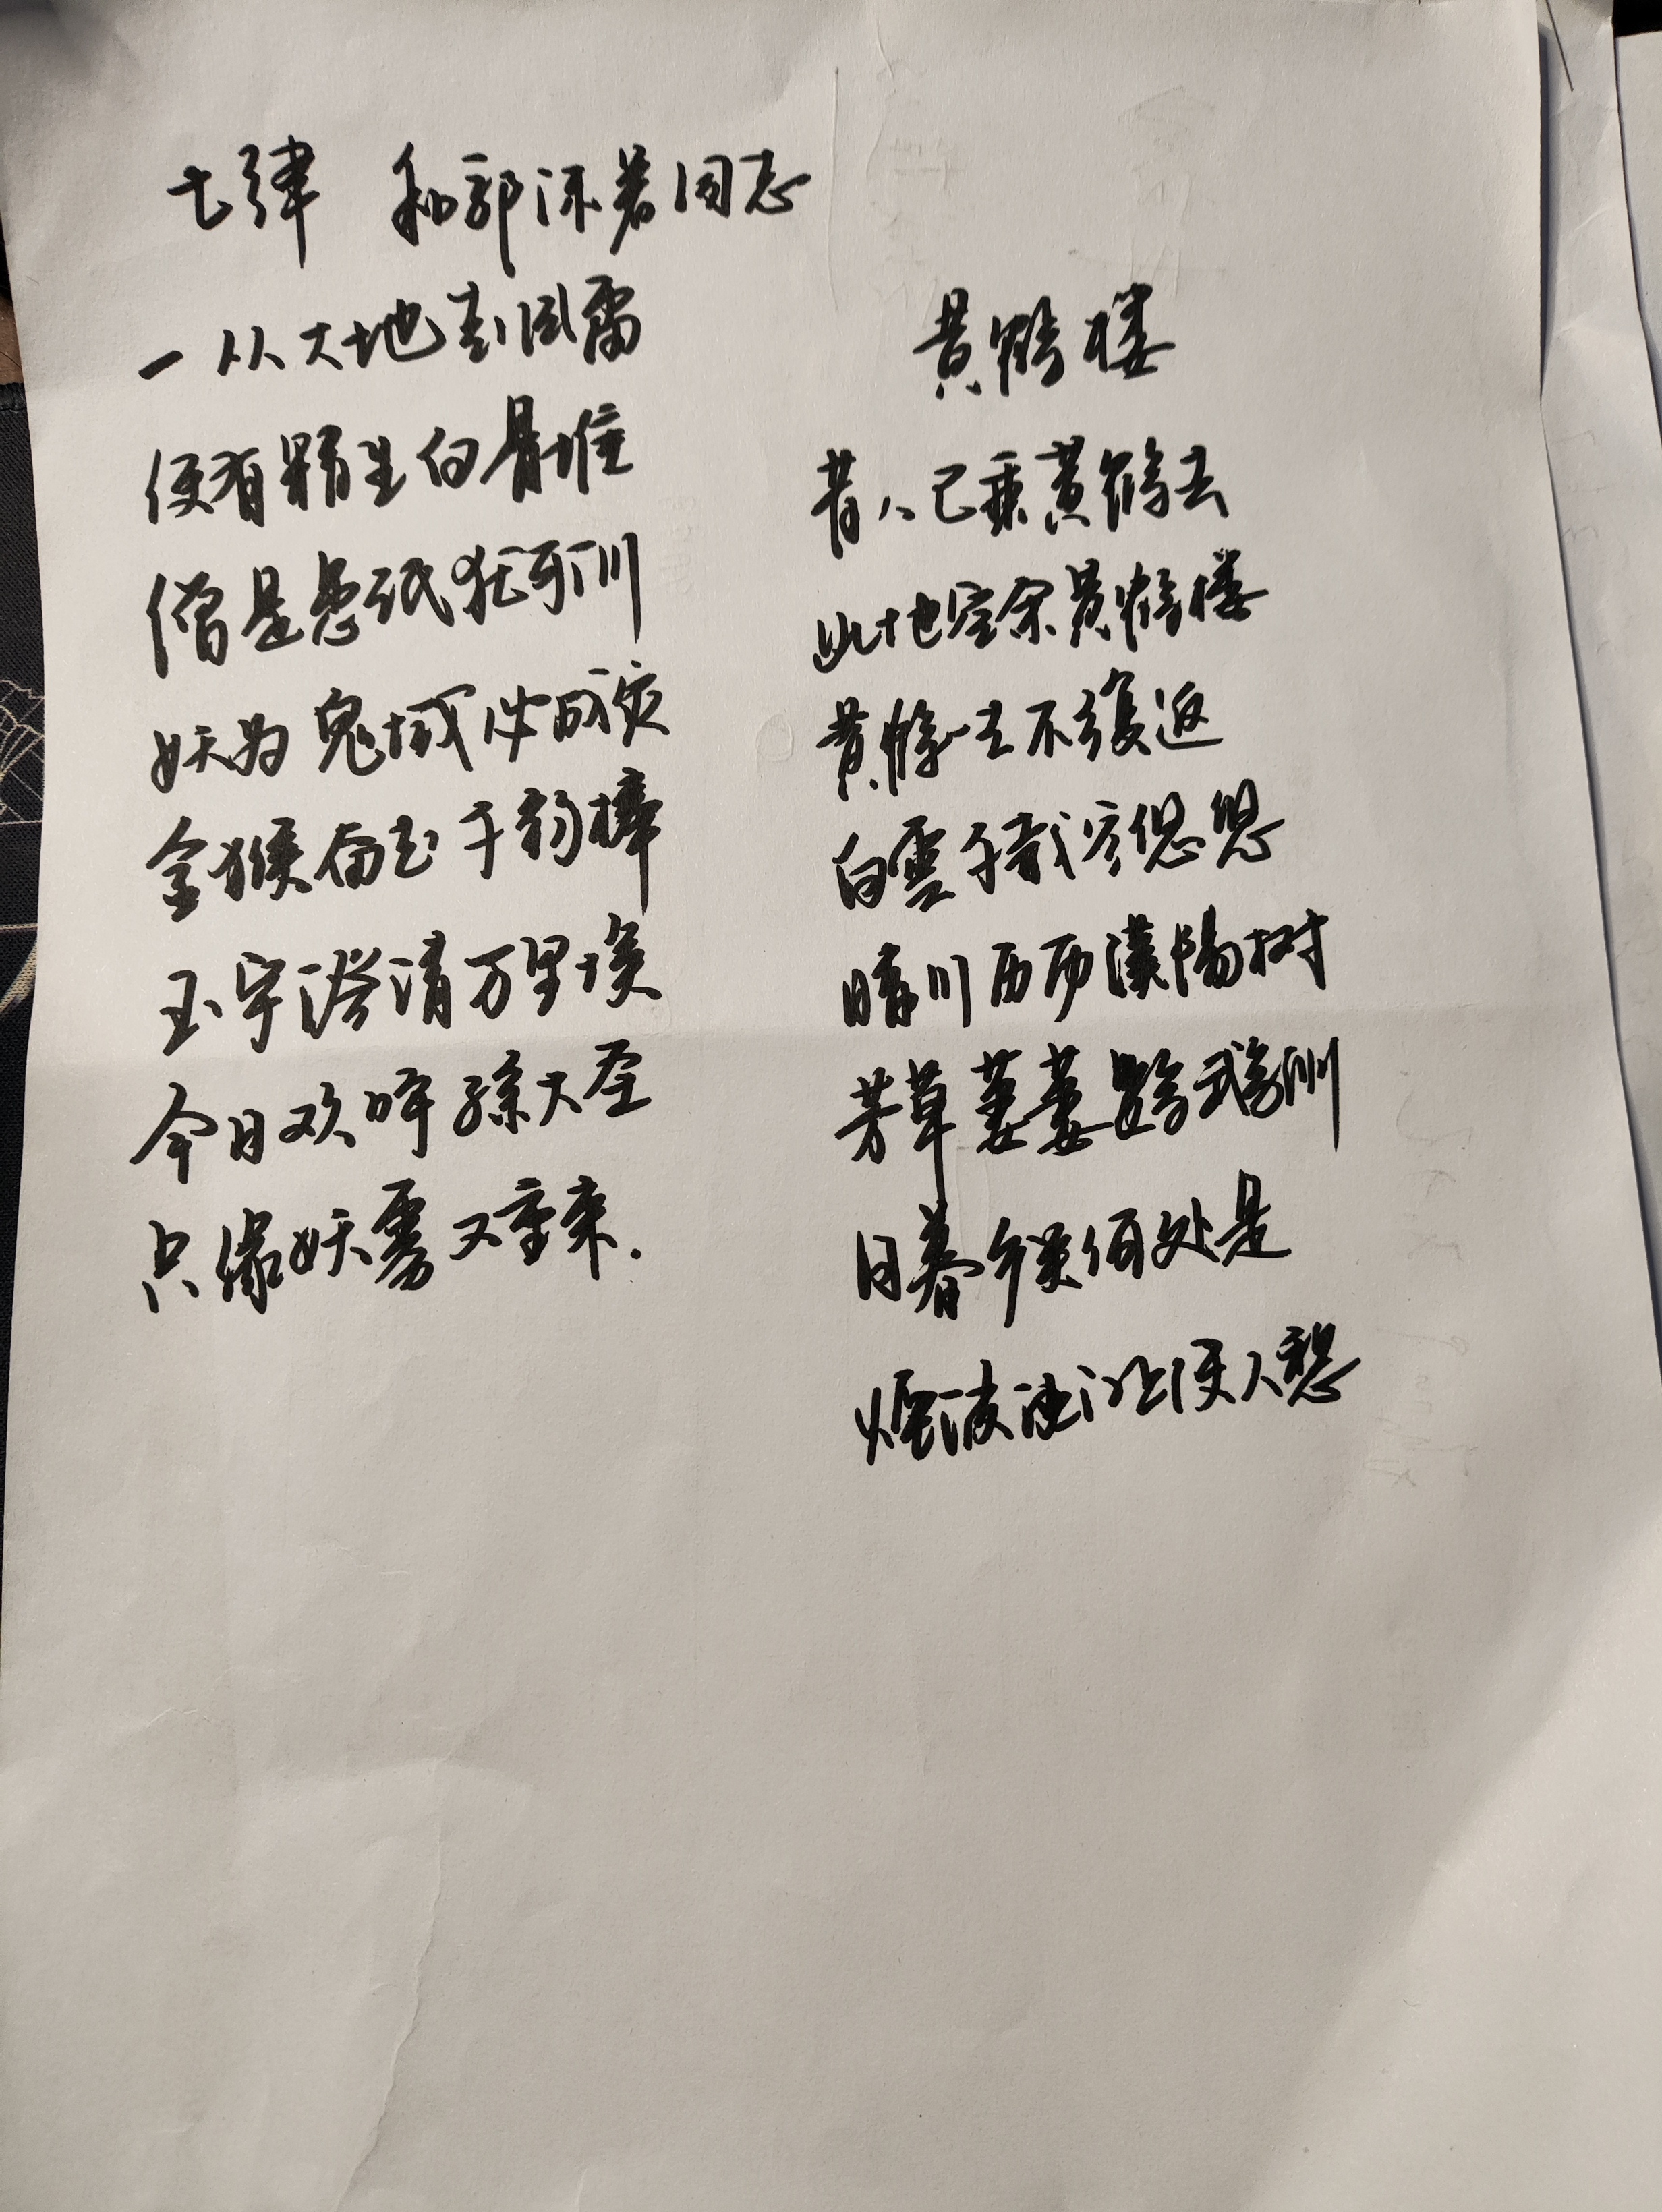 七律 和郭沫若同志
一从大地起风雷
便有精生白骨堆
僧是愚氓犹可训
妖为鬼蜮必成灾
金猴奋起千钧棒
玉宇澄清万里埃
今日欢呼孙大圣
只缘妖雾又重来.
黄鹤楼
昔人已乘黄鹤去
此地空余黄鹤楼
黄鹤一去不復返
白雲千載空悠悠
晴川历历漢陽树
芳草萋萋鹦鹉洲
日暮乡关何处是
烟波江上使人愁